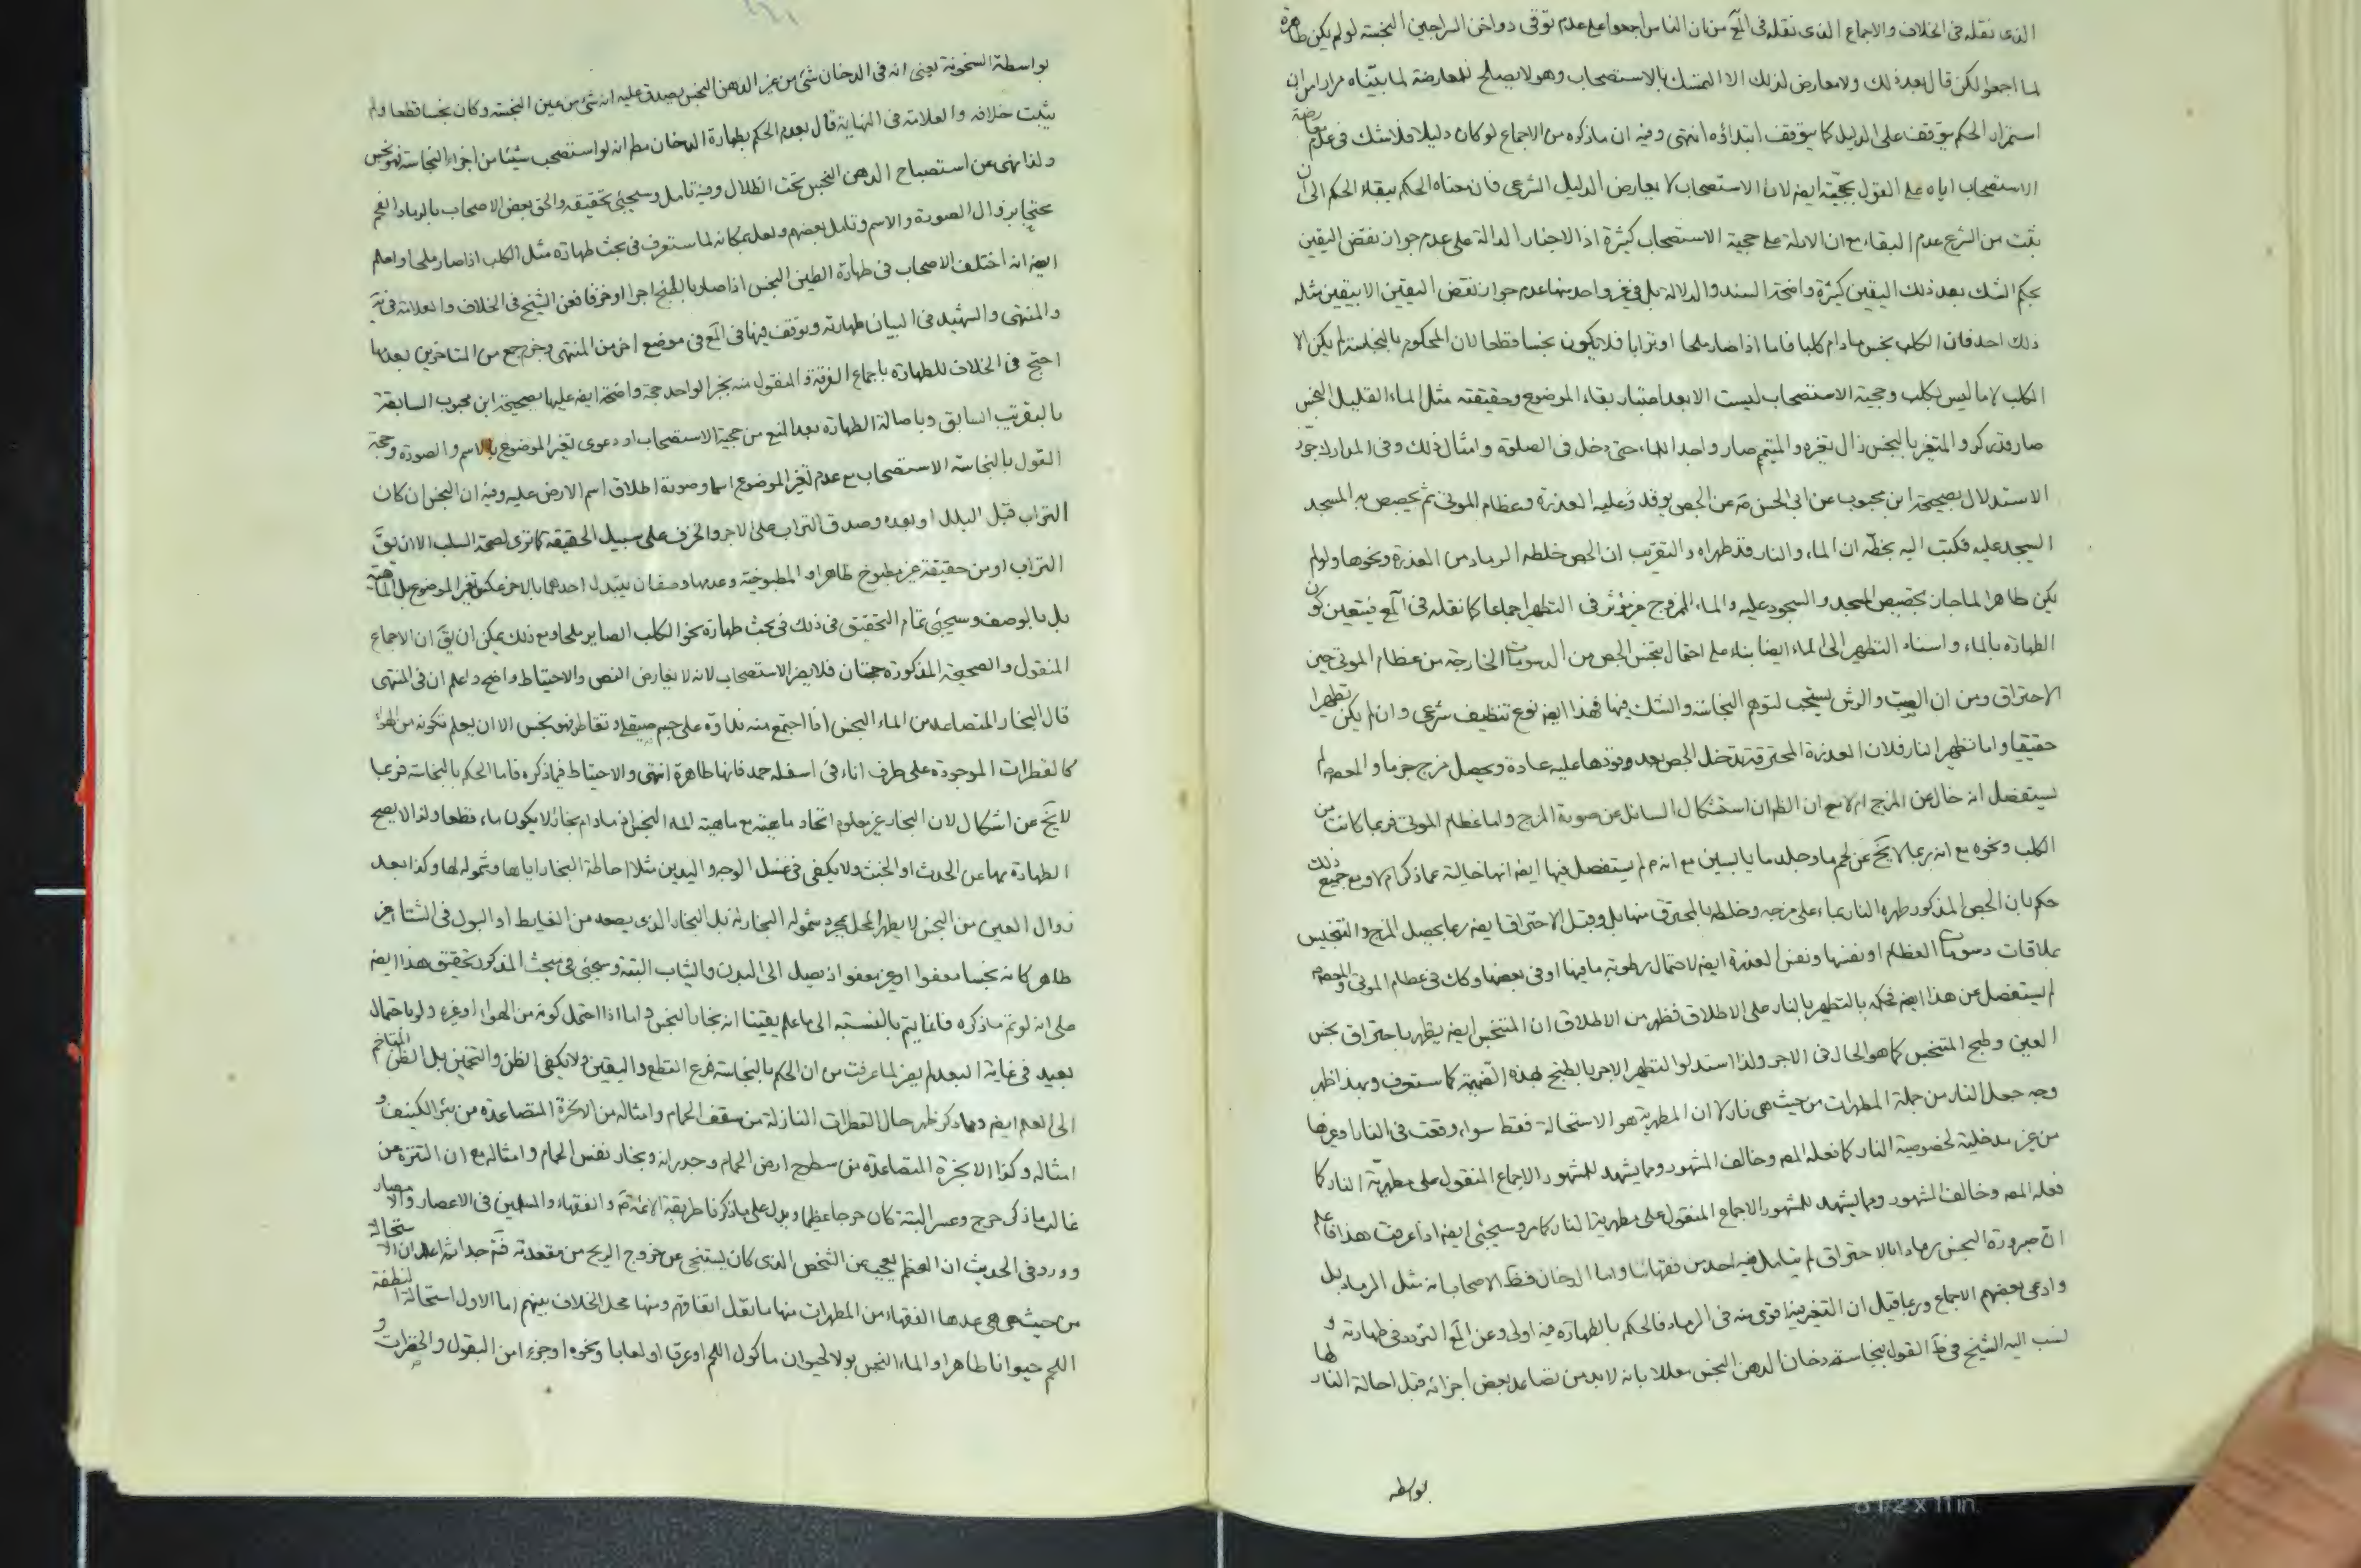 الذى نقله فى الخلاف والاجماع الذى نقله فى المع من ان الناس اجمعوا على عدم توقى دواخن السراجين النجسة لو لم يكن طاهرة
لما اجمعوا لكن قال بعد ذلك ولا معارض لذلك الا التمسك بالاستصحاب وهو لا يصلح للمعارضة لما بيّناه مرارا من ان
استمرار الحكم يتوقف على الدليل كما يتوقف ابتداؤه انتهى وفيه ان ما ذكره من الاجماع لو كان دليلا فلا شك فى عدم معارضة
الاستصحاب اياه على القول بحجيّته ايضا لان الاستصحاب لا يعارض الدليل الشرعى فان معناه الحكم ببقاء الحكم الى ان
يثبت من الشرع عدم البقاء مع ان الادلة على حجية الاستصحاب كثيرة اذ الاخبار الدالة على عدم جواز نقض اليقين
بحكم الشك بعد ذلك اليقين كثيرة واضحة السند والدلالة بل فى غير واحد منها عدم جواز نقض اليقين الا بيقين مثله
ذلك احد فان الكلب نجس ما دام كلبا فاما اذا صار ملحا او ترابا فلا يكون نجسا قطعا لان المحكوم بالنجاسة لم يكن الا
الكلب لا ما ليس بكلب وحجية الاستصحاب ليست الا بعد اعتبار بقاء الموضوع وحقيقته مثل الماء القليل النجس
صار قدر كر والمتغير بالنجس زال تغيره والمتيمم صار واجد الماء حتى دخل فى الصلوة وامثال ذلك وفى المدارك جوّز
الاستدلال بصحيحة ابن محبوب عن ابى الحسن عن الجص يوقد عليه العذرة وعظام الموتى ثم يجصص به المسجد
السجد عليه فكتب اليه بخطّه ان الماء والنار قد طهراه والتقريب ان الجص خلطه الرماد من العذرة ونحوها ولو لم
يكن طاهرا لما جاز تجصيص المسجد والسجود عليه والماء الممزوج غير مؤثر فى التطهير اجماعا كما نقله فى المع فيتعين كون
الطهارة بالماء واسناد التطهير الى الماء ايضا بناء على احتمال تنجس الجص من الدسومات الخارجة من عظام الموتى حين
الاحتراق ومن ان الصب والرش يستحب لتوهم النجاسة والشك فيها فهذا ايضا نوع تنظيف شرعى وان لم يكن تطهيرا
حقيقيا واما تطهير النار فلان العذرة المحترقة تدخل الجص بعد وقودها عليه عادة ويحصل مزج جزما والمعصوم لم
يستفصل انه خال عن المزج ام لا مع ان الظ ان استشكال السائل عن صورة المزج واما عظام الموتى فربما كانت من
الكلب ونحوه مع انه ربما لا يخ عن لحم ما وجلد ما يابسين مع انه م لم يستفصل فيها ايضا انها خالية عما ذكر ام لا ومع جميع ذلك
حكم بان الجص المذكور طهره النار بناء على مزجه وخلطه بالمحترق منها بل وقبل الاحتراق ايضا ربما يحصل المزج والتنجيس
بملاقات دسومات العظام او نفسها ونفس العذرة ايضا لاحتمال رطوبة ما فيها او فى بعضها وكك فى عظام الموتى والمعصوم
لم يستفصل عن هذا ايضا فحكمه بالتطهير بالنار على الاطلاق فظهر من الاطلاق ان المتنجس ايضا يطهر باحتراق نجس
العين وطبخ المتنجس كما هو الحال فى الاجر ولذا استدلوا لتطهير الاجر بالطبخ لهذه كما ستعرف وبهذا ظهر
وجه جعل النار من جملة المطهرات من حيث هى نار لا ان المطهرية هو الاستحالة فقط سواء وقعت فى النار او غيرها
من غير مدخلية لخصوصية النار كما فعله المص وخالف المشهور ومما يشهد للمشهور الاجماع المنقول على مطهريّة النار كما
فعله المص وخالف المشهور ومما يشهد للمشهور الاجماع المنقول على مطهرية النار كما مر وسيجئى ايضا اذا عرفت هذا فاعلم
ان صيرورة النجس رمادا بالاحتراق لم يتامل فيه احد من فقهائنا واما الدخان فظ الاصحاب انه مثل الرماد بل
وادعى بعضهم الاجماع وربما قيل ان التغير فيه اقوى منه فى الرماد فالحكم بالطهارة فيه اولى وعن المع التردد فى طهارته و
نسب اليه الشيخ فى ط القول بنجاسة دخان الدهن النجس معللا بانه لا بد من تصاعد بعض اجزائه قبل احالة النار لها
بواسطة
بواسطة السخونة يعنى انه فى الدخان شئ من عين الدهن النجس يصدق عليه انه شئ من عين النجسة وكان نجسا قطعا ولم
يثبت خلافه والعلامة فى النهاية قال بعدم الحكم بطهارة الدخان مطم انه لو استصحب شيئا من اجزاء النجاسة فهو نجس
ولذا نهى عن استصباح الدهن النجس تحت الظلال وفيه تامل وسيجئى تحقيقه والحق بعض الاصحاب بالرماد الفحم
محتجا بزوال الصورة والاسم وتامل بعضهم ولعل بمكانه لما ستعرف فى بحث طهارة مثل الكلب اذا صار ملحا واعلم
ايضا انه اختلف الاصحاب فى طهارة الطين النجس اذا صار بالطبخ اجرا او خزفا فعن الشيخ فى الخلاف والعلامة فى
والمنتهى والشهيد فى البيان طهارته وتوقف فيها فى المع فى موضع اخر من المنتهى وجزم جمع من المتاخرين بعدمها
احتج فى الخلاف للطهارة باجماع الفرقة والمنقول منه بخبر الواحد حجة واضحة ايضا عليها بصحيحة ابن محبوب السابقة
بالتقريب السابق وباصالة الطهارة بعد المنع من حجية الاستصحاب او دعوى تغير الموضوع بالاسم والصورة وحجة
القول بالنجاسة الاستصحاب مع عدم تغير الموضوع اسما وصورة اطلاق اسم الارض عليه وفيه ان النجس ان كان
التراب قبل البلل او بعده وصدق التراب على الاجر والخزف على سبيل الحقيقة كما ترى لصحة السلب الا ان يق
التراب او من حقيقة غير مطبوخ طاهرا والمطبوخية وعدمها وصفان يتبدل احدهما بالاخر تغير الموضوع بل الماهية
بل بالوصف وسيجئى تمام التحقيق فى ذلك فى بحث طهارة نحو الكلب الصاير ملحا ومع ذلك يمكن ان يق ان الاجماع
المنقول والصحيحة المذكورة حجتان فلا يضر الاستصحاب لانه لا يعارض النص والاحتياط واضح واعلم ان فى المنتهى
قال البخار المتصاعد من الماء النجس اذا اجتمع منه نداوة على جسم صيقل وتقاطر فهو نجس الا ان يعلم تكونه من الهواء
كالقطرات الموجودة على طرف اناء فى اسفله جمد فانها طاهرة انتهى والاحتياط فيما ذكره فاما الحكم بالنجاسة فربما
لا يخ عن اشكال لان البخار غير معلوم اتحاد ماهيته مع ماهية الماء النجس اذ ما دام بخارا لا يكون ماء قطعا ولذا لا يصح
الطهارة بها عن الحدث او الخبث ولا يكفى فى غسل الوجه واليدين مثلا احاطة البخار اياها وشموله لها وكذا بعد
زوال العين من النجس لا يطهر المحل بمجرد شموله البخار له بل البخار الذى يصعد من الغايط او البول فى الشتاء غير
طاهر كانه نجسا معفوا او غير معفو اذ يصل الى البدن والثياب البتة وسيجئى فى مبحث المذكور تحقيق هذا ايضا
على انه لو تم ما ذكره فانما يتم بالنسبة الى ما علم يقينا انه بخار النجس واما اذا احتمل كونه من الهواء او غيره ولو باحتمال
بعيد فى غاية البعد لم يضر لما عرفت من ان الحكم بالنجاسة فرع القطع واليقين ولا يكفى الظن والتخمين بل الظن المتاخم
الى العلم ايضا ومما ذكر ظهر حال القطرات النازلة من سقف الحمام وامثاله من الابخرة المتصاعدة من بئر الكنيف و
امثاله وكذا الابخرة المتصاعدة من سطح ارض الحمام وجدرانه وبخار نفس الحمام وامثاله مع ان التنزه من
غالب ما ذكر حرج وعسر البتة كان حرجا عظيما ويدل على ما ذكرنا طريقة الائمة والفقهاء والمسلمين فى الاعصار والامصار
وورد فى الحديث ان العظم يعجب عن الشخص الذى كان يستنجى عن خروج الريح من مقعدته فتم جدا ثم اعلم ان الاستحالة
من حيث هى هى عدها الفقهاء من المطهرات منها ما نقل اتفاقهم ومنها محل الخلاف بينهم اما الاول استحالة النطفة
اللحم حيوانا طاهرا والماء النجس بولا لحيوان ماكول اللحم او عرقا او لعابا ونحوه او جزء من البقول والخضرات و